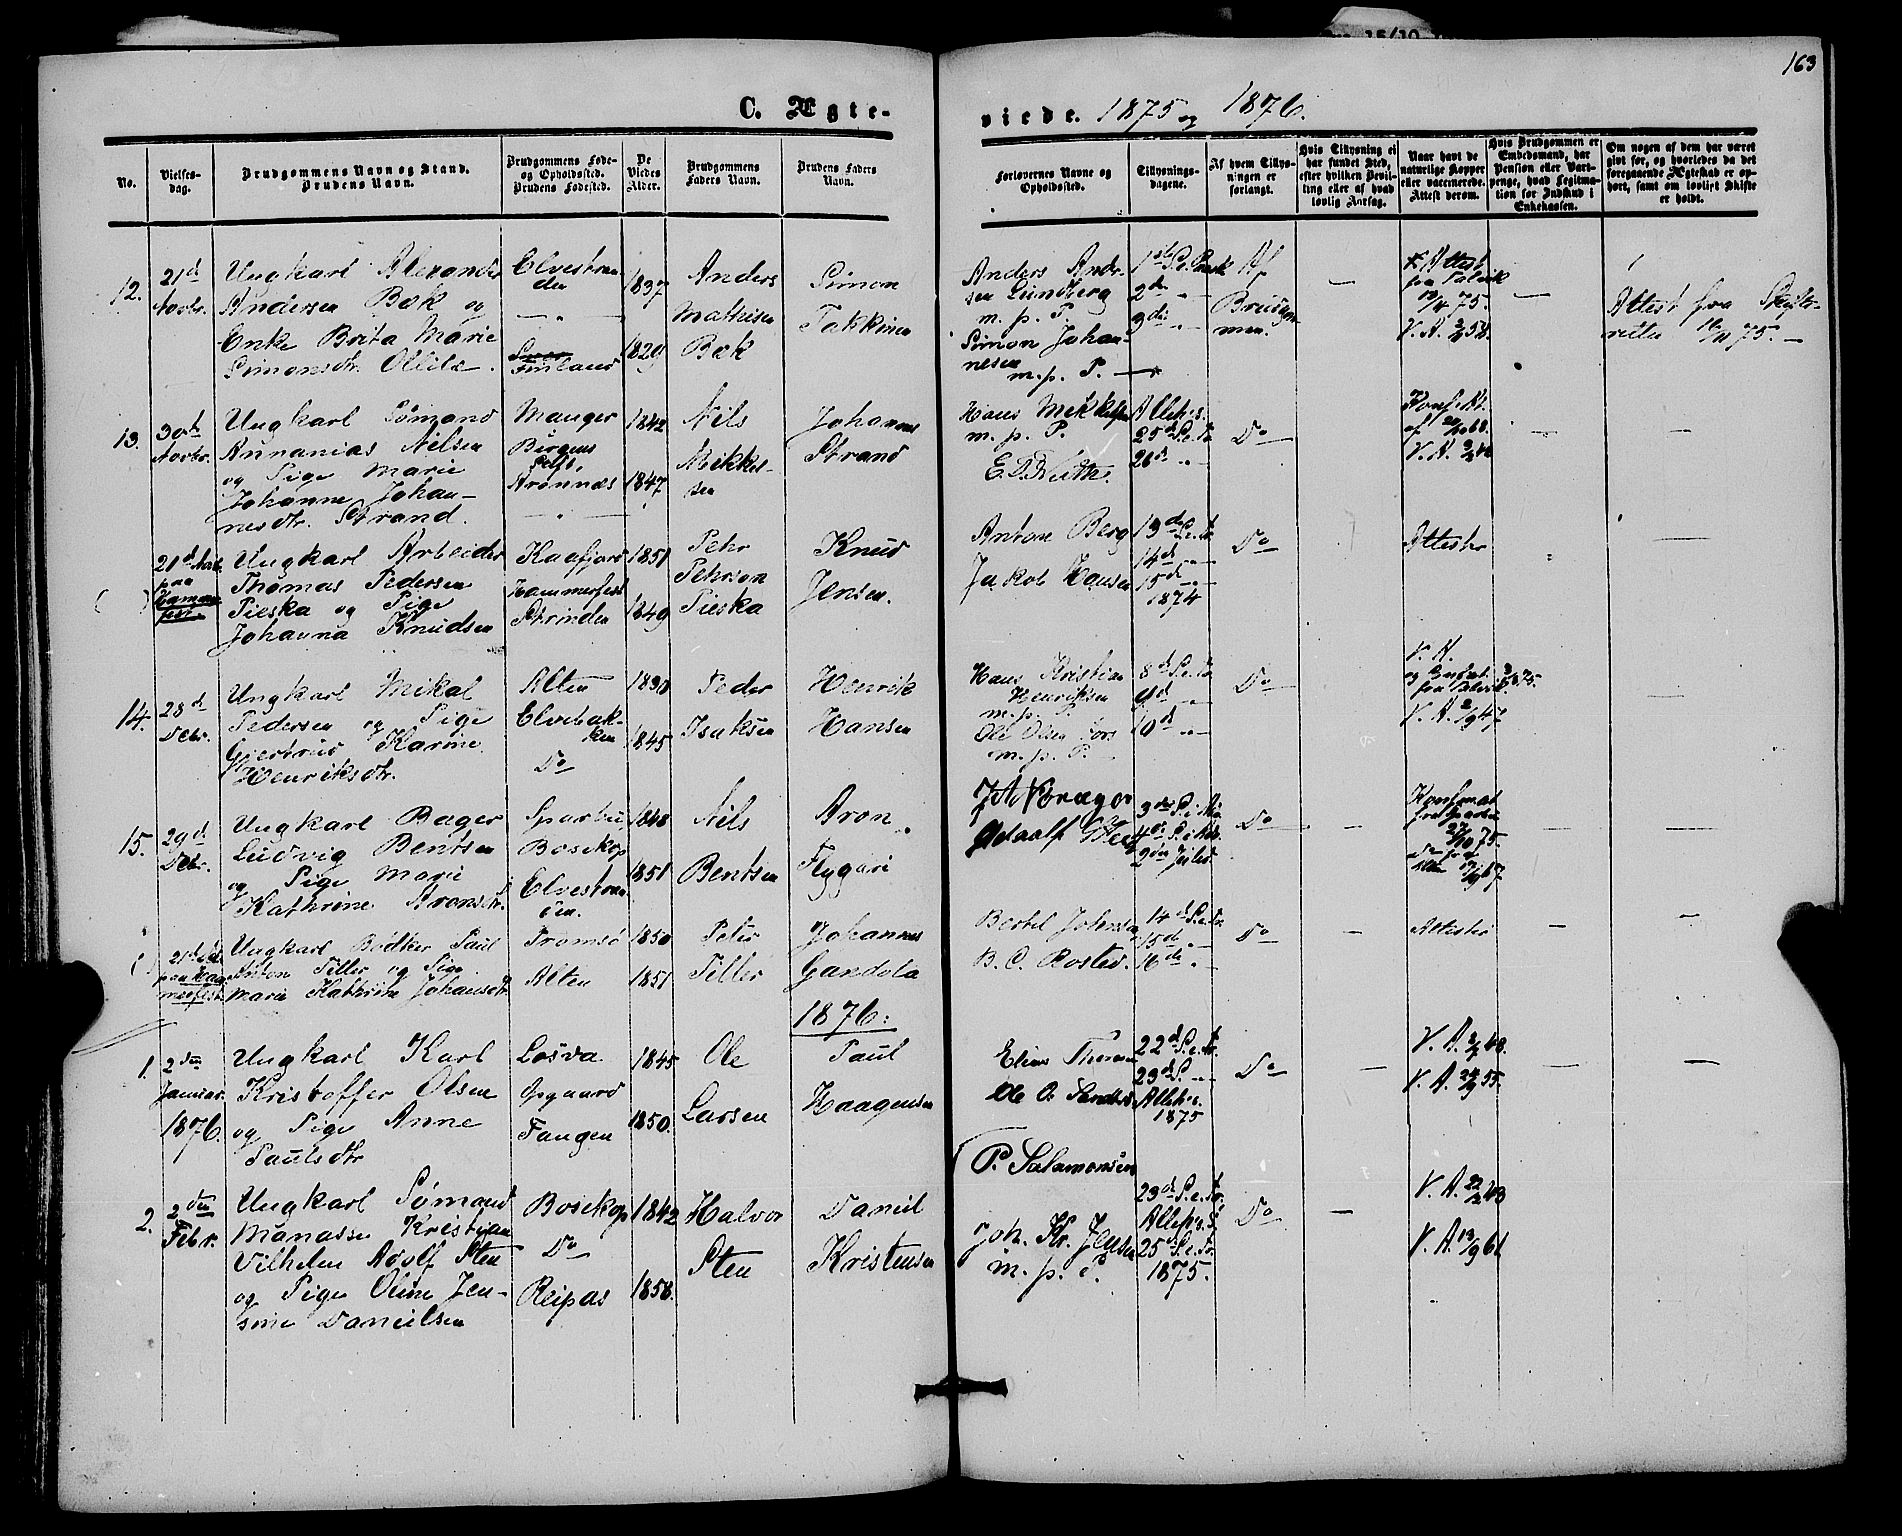 163
C. Ægte-
viede. 1875 og 1876.
No.
Vielses-
dag.
Brudgommens Navn og Stand.
Brudens Navn.
Brudgommens Føde-
og Opholdssted.
Brudens Fødested.
De
Viedes
Alder.
Brudgommens
Faders Navn.
Brudens Faders
Navn.
Forlovernes Navne og
Opholdssted.
Tillysnings-
dagene.
Af hvem Tillys-
ningen er
forlangt.
Hvis Tillysning ei
har fundet Sted,
efter hvilken Bevil-
ling eller af hvad
lovlig Aarsag.
Naar havt de
naturlige Kopper
eller vaccinerede.
Attest derom.
Hvis Brudgommen er
Embedsmand, har
Pension eller Vart-
penge, hvad Legitima-
tion for Indskud i
Enkekassen.
Om nogen af dem har været
gift før, og hvorledes da det
foregaaende Ægteskab er op-
hørt, samt om lovligt Skifte
er holdt.
12.
21d
Novbr.
Ungkarl Alexander
Andersen Bæk og
Enke Brita Marie
Simonsdtr. Ollila.
Elvestran-
den
Finland
1837
1829
Anders
Mathisen
Bæk
Simon
Takkinen
Anders Andr.
sen Lundberg
m. p. P.
Simon Johan-
nesen
m. p. P.
2de
3die
Af
Brudgom-
men.
Attest
75.
V. A.
Attest fra Skifte-
retten 75.
13.
30te
Novbr.
Ungkarl Sømand
Annanias Nilsen
og Pige Marie
Johanne Johan-
nesdtr. Strand.
Manger
Bergens
Stift,
Aronnes
1842
1847
Nils
Mikkel-
sen
Johannes
Strand
Hans Mikkelsen
m. p. P.
Alleh.s.
25d S. e. Tr.
26d
Do
V. A.
21d Novb.
paa
Hammer-
fest
Ungkarl Arbeider
Thomas Pedersen
Pieska og Pige
Johanna Knudsen
Kaafjord
Hammerfest
Strinden
1851
1849
Pehr
Pehrson
Pieska
Knud
Jensen.
Antone Berg
Jakob Hansen
13de S. e. Tr.
14d
15d
1874
Do
Attester
14.
28d
Debr.
Ungkarl Mikal
Pedersen og Pige
Gjertrud Karine
Henriksdtr.
Alten
Elvebak-
ken
Do
1845
Peder
Isaksen
Henrik
Hansen
Hans Kristian
Henriksen
m. p. P.
Ole Olsen
m. p. P.
8d S. e. Tr.
9d
10d
Do
V. A.
V. A. 47
15.
29d
Debr.
Ungkarl Bager
Ludvig Bentsen
og Pige Marie
Kathrine Aronsdtr.
Sparbu
Bosekop
Elvestran-
den.
1848
1851
Nils
Bentsen
Aron
Flygari
Do
75.
67
Ungkarl Bødker Paul
Anton Tiller og Pige
Marie Kathrine Johansdtr.
Tromsø
Alten
1850
1851
Peter
Tiller
Johannes
Gandola
Bertel Johnsen
B. C. Rosted.
14d S. e. Tr.
15de
16de
Do
Attester
1876:
1.
2den
Januar
1876.
Ungkarl Karl
Kristoffer Olsen
og Pige Anne
Paulsdtr
Losva
Opgaard
Tangen
1845
1850.
Ole
Larsen
Paul
Haagensen
Elias Thomas
22d S. e. Tr.
23d S.
Alleh.s.
1875
Do
V. A.
V. A. 55.
2.
2den
Febr.
Ungkarl Sømand
Manasse Kristian
Vilhelm Adolf Sten
og Pige Oline Jen-
sine Danielsen
Bosekop
Do
Reipas
1842
1858.
Halvor
Sten
Daniel
Kristensen
P. Salamonsen
Joh. Kr. Jensen
m. p. P.
23d S. e. Tr.
Alleh.s.
25d S. e. Tr.
1875.
Do
V. A. 43
V. A. 61